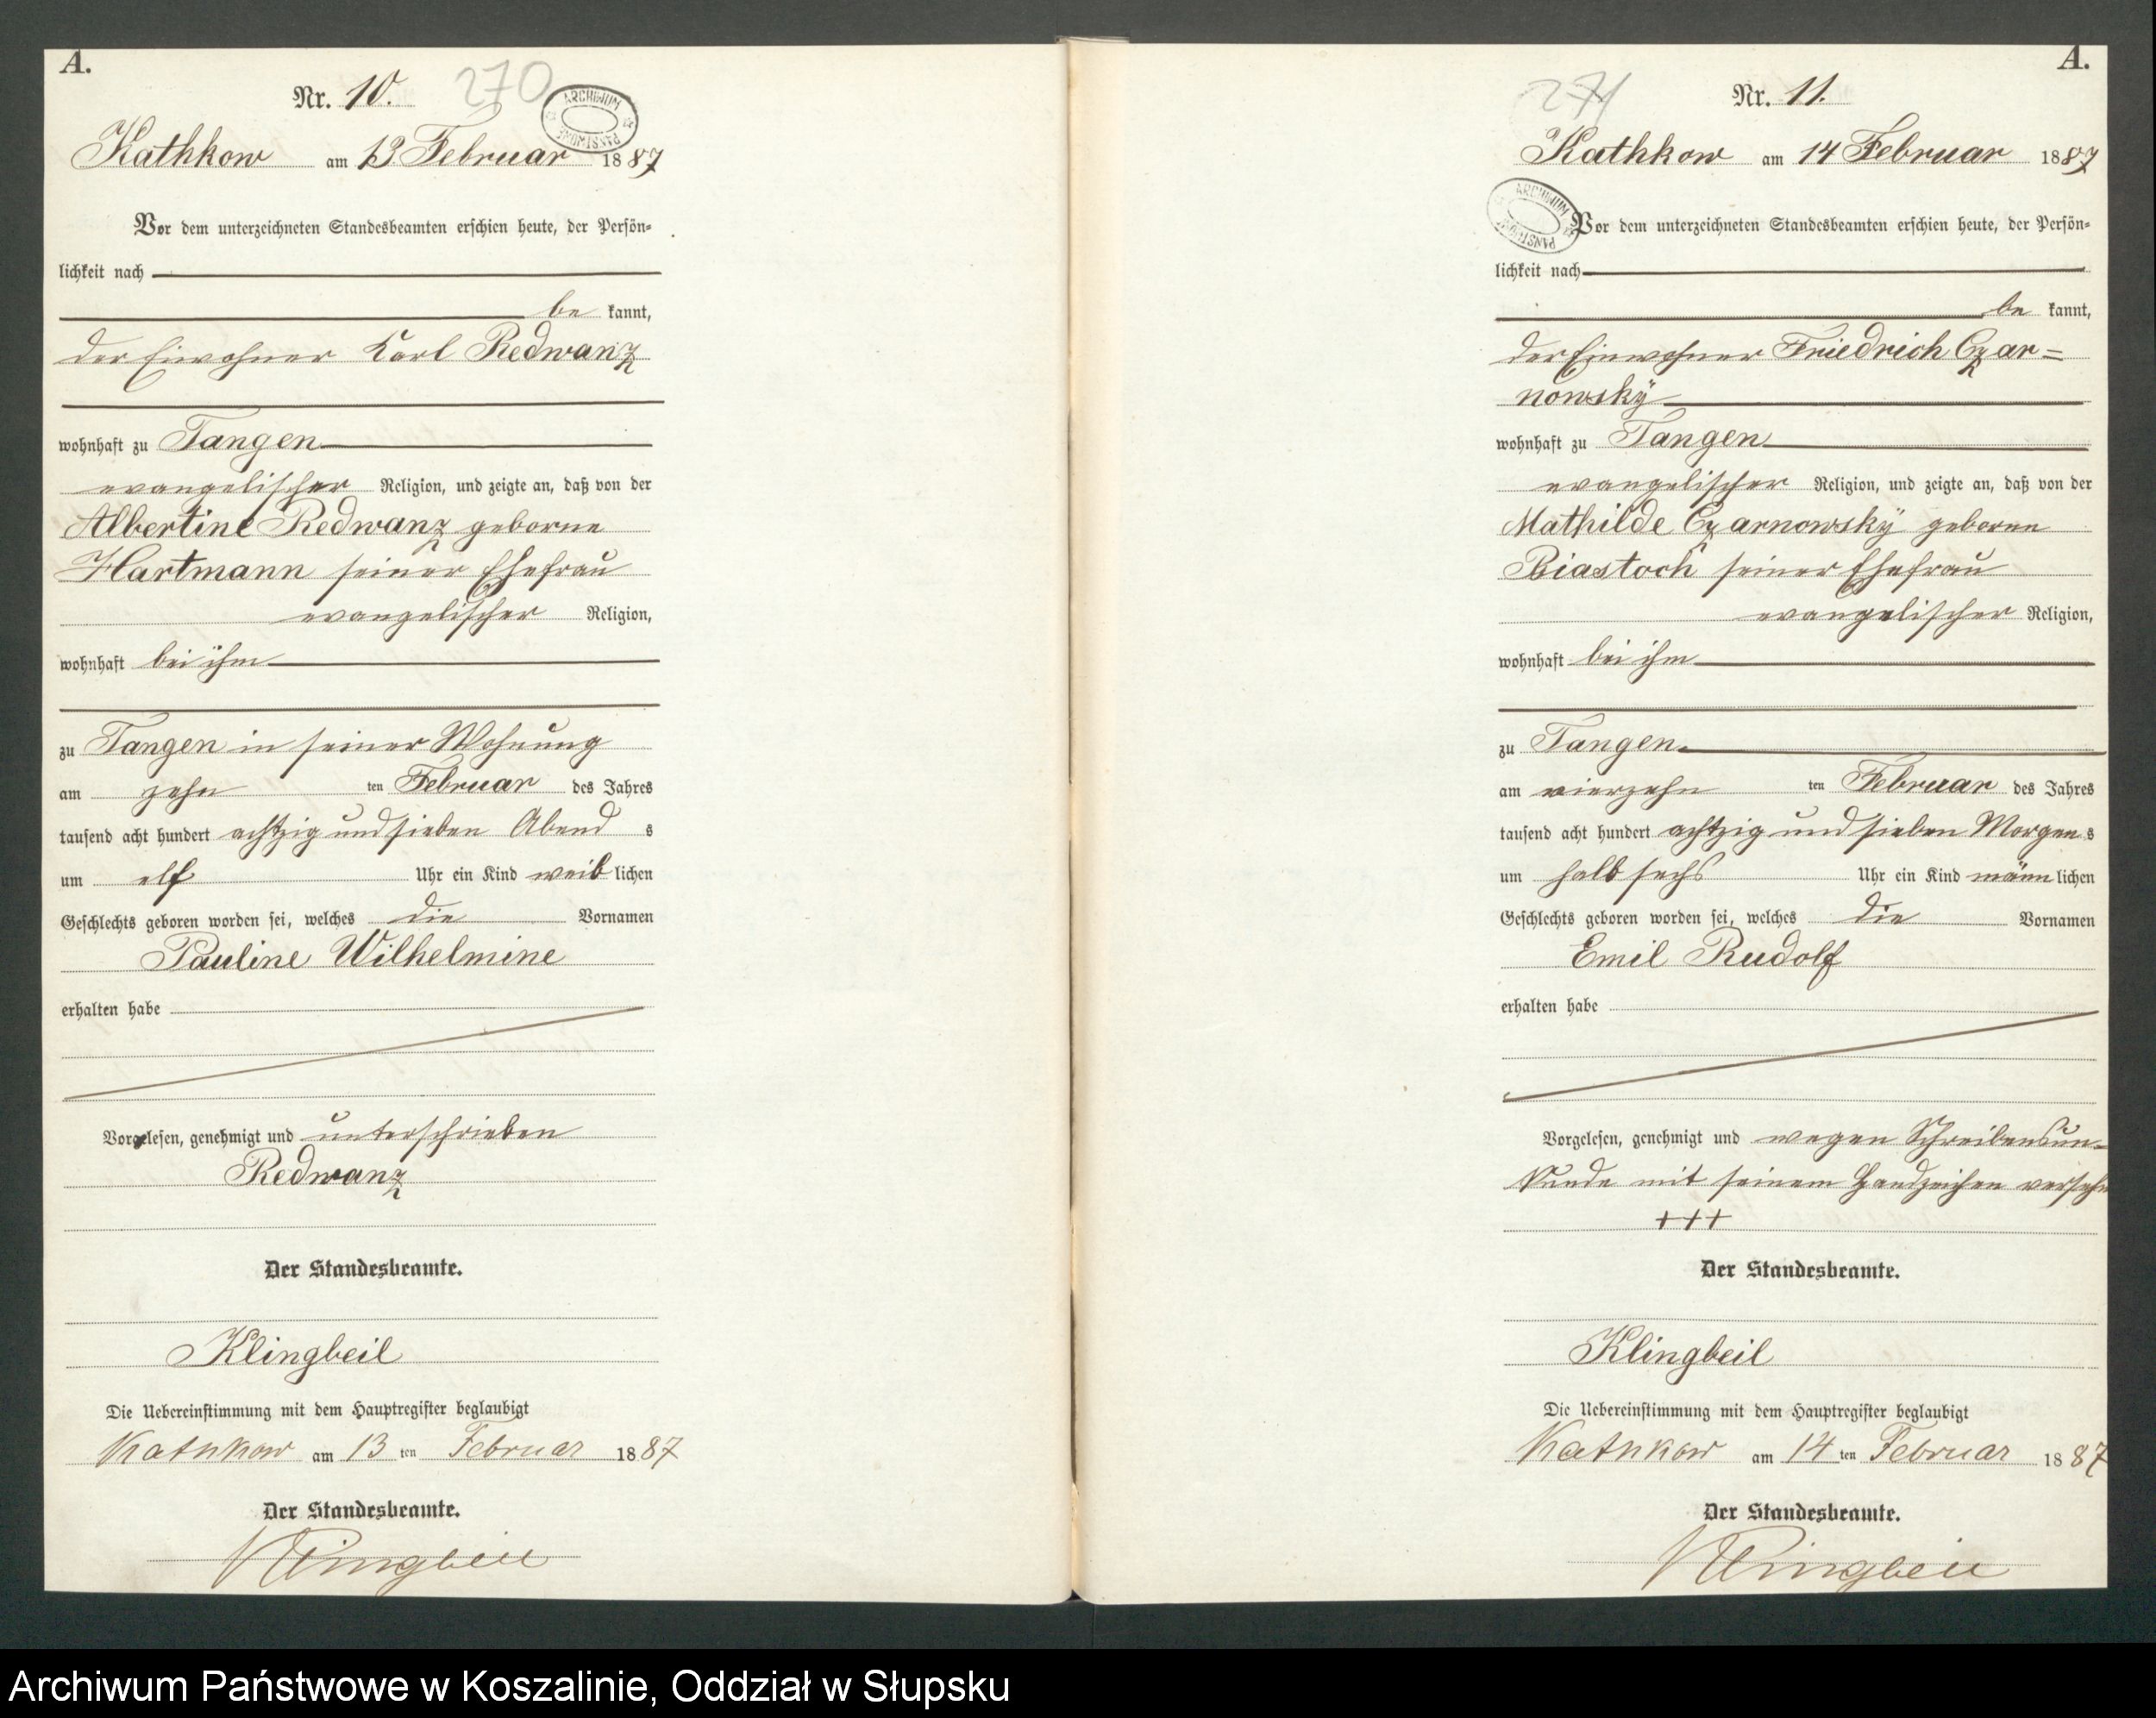 A.
Nr. 10.
270
ARCHIWUM PAŃSTWOWE
Kathkow am 13. Februar 1887
Vor dem unterzeichneten Standesbeamten erschien heute, der Persön-
lichkeit nach
be kannt,
der Eiwohner Karl Redwanz
wohnhaft zu Tangen
evangelischer Religion, und zeigte an, daß von der
Albertine Redwanz geborne
Hartmann seiner Ehefrau
evangelischer Religion,
wohnhaft bei ihm
zu Tangen in seiner Wohnung
am zehn ten Februar des Jahres
tausend acht hundert achtzig und sieben Abend s
um elf Uhr ein Kind weib lichen
Geschlechts geboren worden sei, welches die Vornamen
Pauline Wilhelmine
erhalten habe
Vorgelesen, genehmigt und unterschrieben
Redwanz
Der Standesbeamte.
Klingbeil
Die Uebereinstimmung mit dem Hauptregister beglaubigt
Kathkow am 13 ten Februar 1887
Der Standesbeamte.
Klingbeil
A.
Nr. 11.
271
Kathkow am 14 Februar 1887
ARCHIWUM PAŃSTWOWE
Vor dem unterzeichneten Standesbeamten erschien heute, der Persön-
lichkeit nach
be kannt,
der Einwohner Friedrich Czar=
nowsky
wohnhaft zu Tangen
evangelischer Religion, und zeigte an, daß von der
Mathilde Czarnowsky geborne
Biastoch seiner Ehefrau
evangelischer Religion,
wohnhaft bei ihm
zu Tangen
am vierzehn ten Februar des Jahres
tausend acht hundert achtzig und sieben Morgen s
um halb sechs Uhr ein Kind männ lichen
Geschlechts geboren worden sei, welches die Vornamen
Emil Rudolf
erhalten habe
Vorgelesen, genehmigt und wegen Schreibensun=
kunde mit seinem Handzeichen versehn
+++
Der Standesbeamte.
Klingbeil
Die Uebereinstimmung mit dem Hauptregister beglaubigt
Kathkow am 14 ten Februar 1887
Der Standesbeamte.
Klingbeil
Archiwum Państwowe w Koszalinie, Oddział w Słupsku